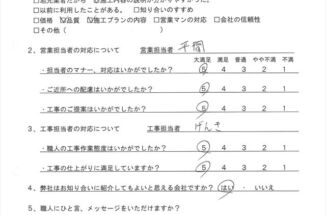 □以前に利用したことがある。 □知り合いのすすめ
□価格 ☑品質 □施工プランの内容 □営業マンの対応 □会社の信頼性
□その他( )
2、営業担当者の対応について 営業担当者 平間
大満足 満足 普通 やや不満 不満
・担当者のマナー、対応はいかがでしたか? 5 4 3 2 1
・ご近所への配慮はいかがでしたか? 5 4 3 2 1
・工事のご提案はいかがでしたか? 5 4 3 2 1
3、工事担当者の対応について 工事担当者 げんき
大満足 満足 普通 やや不満 不満
・職人の工事作業態度はいかがでしたか? 5 4 3 2 1
・工事の仕上がりに満足していますか? 5 4 3 2 1
4、弊社はお知り合いに紹介してもよいと思える会社ですか? はい ・ いいえ
5、職人にひと言、メッセージをいただけますか?